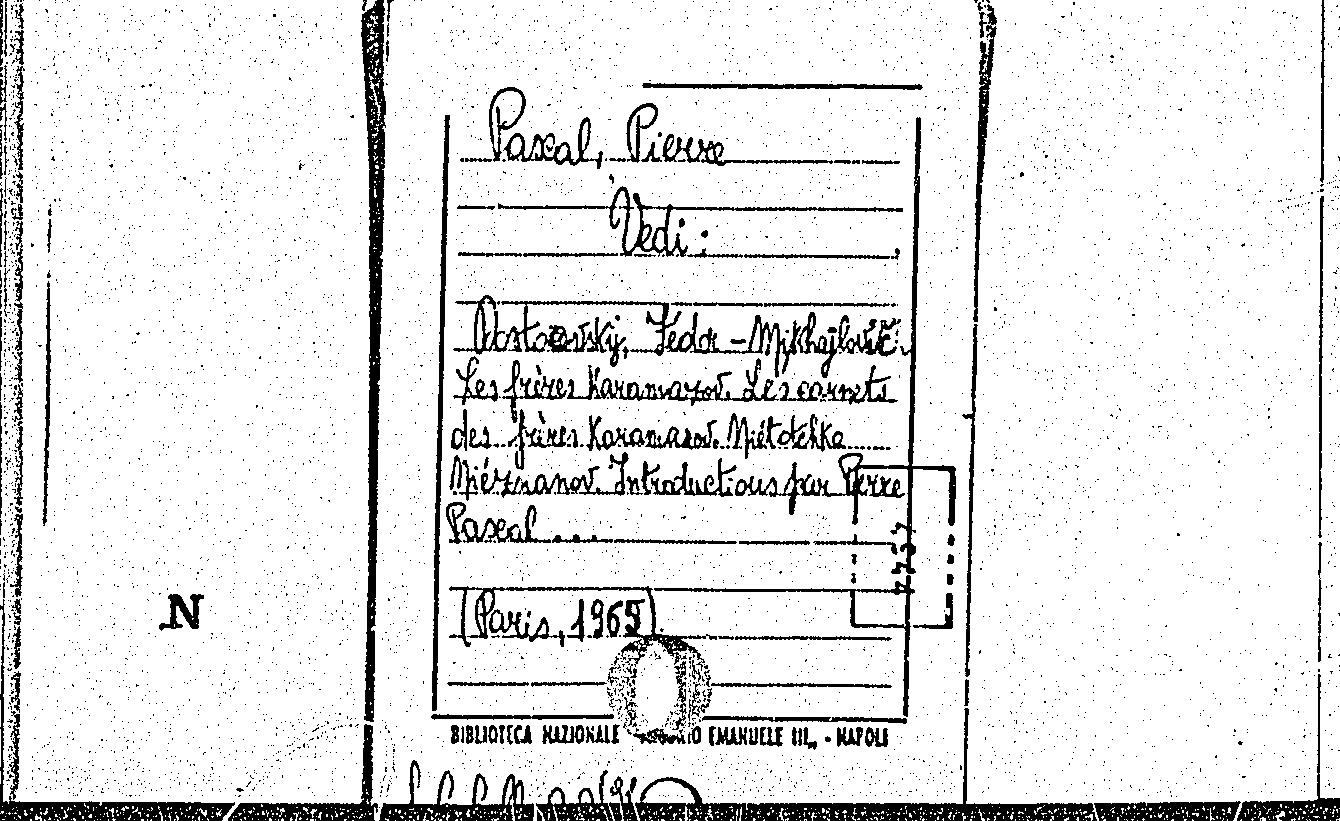 Pascal, Pierre
Vedi :
Dostoevskij, Fëdor - Mijkhajlovič.
Les frères Karamazov. Les carnets
des frères Karamazov. Niétotchka
Niézvanov. Introductions par Pierre
Pascal ...
(Paris, 1965)
N
BIBLIOTECA NAZIONALE EMANUELE III„ - NAPOLI